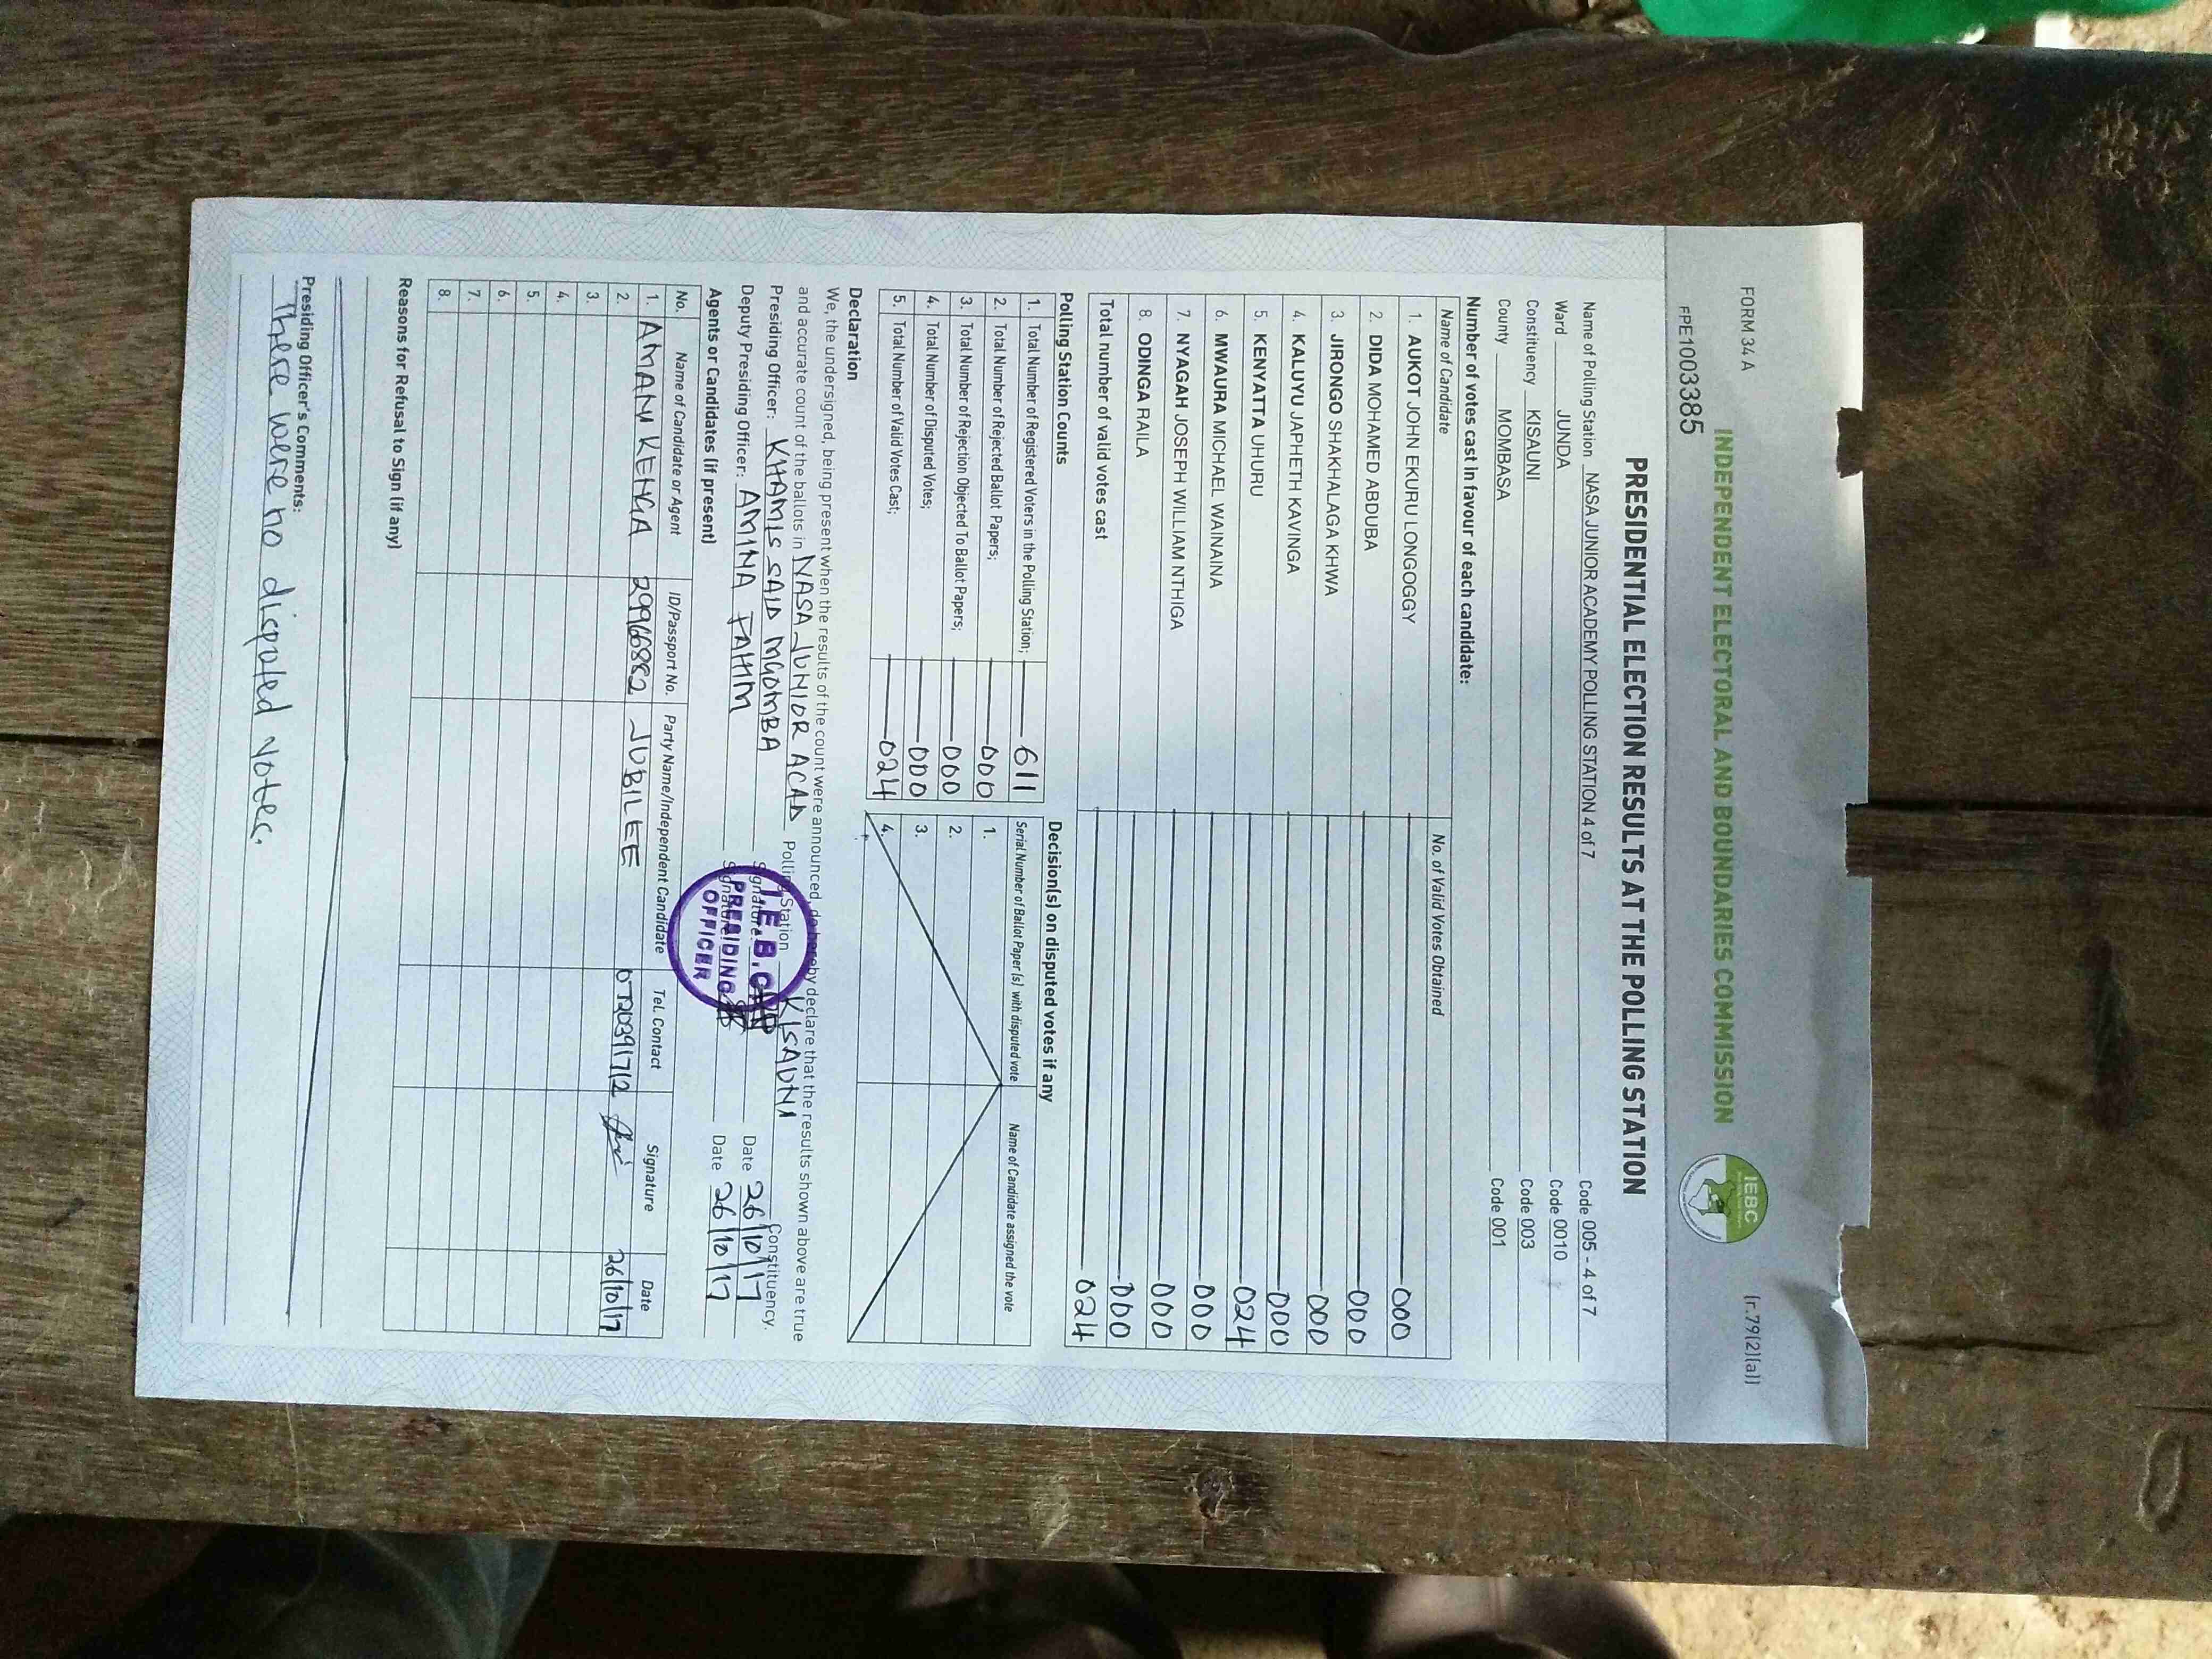 FORM 34 A
(r.79(2)(a))
INDEPENDENT ELECTORAL AND BOUNDARIES COMMISSION
IEBC
PRE1003385
PRESIDENTIAL ELECTION RESULTS AT THE POLLING STATION
Name of Polling Station NASA JUNIOR ACADEMY POLLING STATION 4 of 7 Code 005 - 4 of 7
Ward JUNDA Code 0010
Constituency KISAUNI Code 003
County MOMBASA Code 001
Number of votes cast in favour of each candidate:
Name of Candidate No. of Valid Votes Obtained
1. AUKOT JOHN EKURU LONGOGGY 000
2. DIDA MOHAMED ABDUBA 000
3. JIRONGO SHAKHALAGA KHWA 000
4. KALUYU JAPHETH KAVINGA 000
5. KENYATTA UHURU 024
6. MWAURA MICHAEL WAINAINA 000
7. NYAGAH JOSEPH WILLIAM NTHIGA 000
8. ODINGA RAILA 000
Total number of valid votes cast 024
Polling Station Counts
1. Total Number of Registered Voters in the Polling Station; 611
2. Total Number of Rejected Ballot Papers; 000
3. Total Number of Rejection Objected To Ballot Papers; 000
4. Total Number of Disputed Votes; 000
5. Total Number of Valid Votes Cast; 024
Decision(s) on disputed votes if any
Serial Number of Ballot Paper (s) with disputed vote Name of Candidate assigned the vote
1.
2.
3.
4.
Declaration
We, the undersigned, being present when the results of the count were announced, do hereby declare that the results shown above are true
and accurate count of the ballots in NASA JUNIOR ACAD Polling Station KISAUNI Constituency.
Presiding Officer: KHAMIS SAID MGOMBA Signature Date 26/10/17
Deputy Presiding Officer: AMINA FAHIM Signature Date 26/10/17
I.E.B.C
PRESIDING
OFFICER
Agents or Candidates (if present)
No. Name of Candidate or Agent ID/Passport No. Party Name/Independent Candidate Tel. Contact Signature Date
1. AMANI KENGA 29966882 JUBILEE 0720391712 26/10/17
2.
3.
4.
5.
6.
7.
8.
Reasons for Refusal to Sign (if any)
Presiding Officer's Comments:
There were no disputed votes.